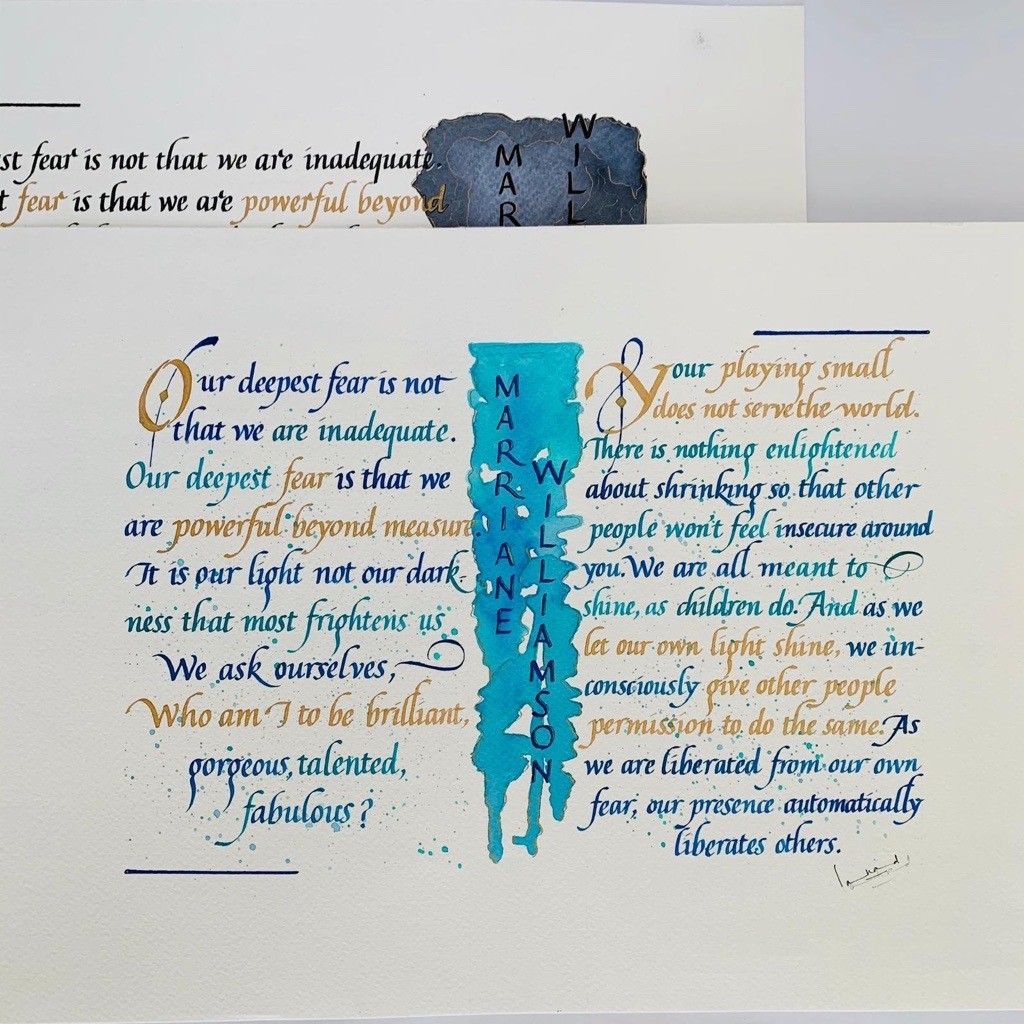 st fear is not that we are inadequate.
fear is that we are powerful beyond
MAR
WILL
Our deepest fear is not
that we are inadequate.
Our deepest fear is that we
are powerful beyond measure.
It is our light not our dark-
ness that most frightens us
We ask ourselves,
Who am I to be brilliant,
gorgeous, talented,
fabulous?
MARRIANE
WILLIAMSON
Your playing small
does not serve the world.
There is nothing enlightened
about shrinking so that other
people won't feel insecure around
you. We are all meant to
shine, as children do. And as we
let our own light shine, we un-
consciously give other people
permission to do the same. As
we are liberated from our own
fear, our presence automatically
liberates others.